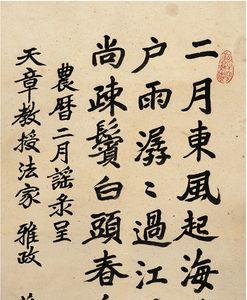 二月東風起海
户雨潺〻過江
尚疎鬢白頭春
農曆二月謠录呈
天章教授法家 雅政